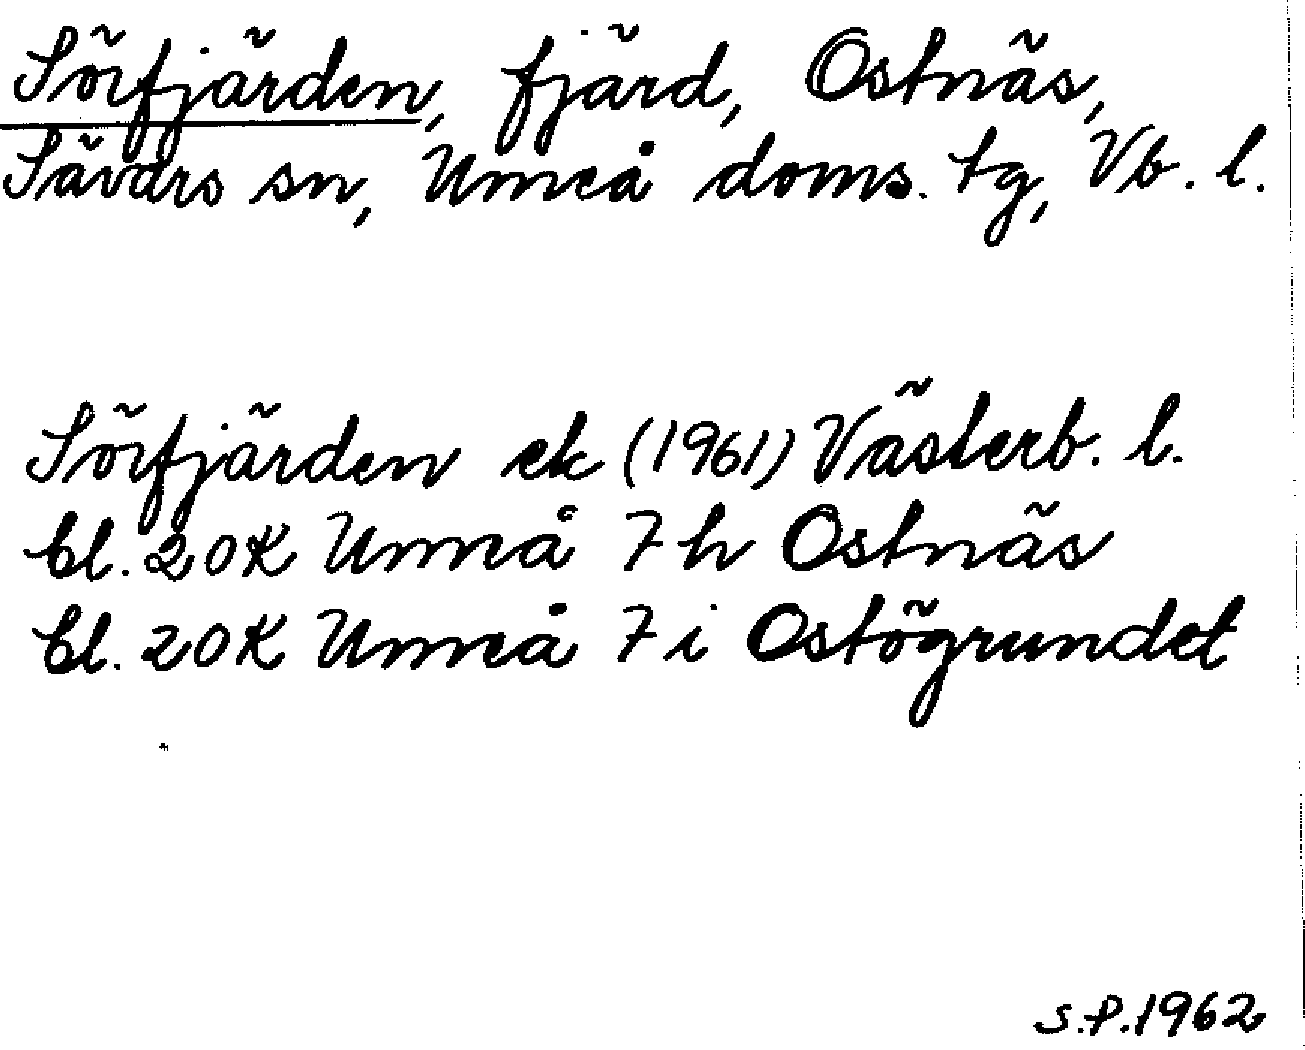 Sörfjärden, fjärd, Ostnäs,
Sävars sn, Umeå doms. tg, Vb. l.
Sörfjärden ek (1961) Västerb. l.
bl. 20K Umeå 7h Ostnäs
bl. 20K Umeå 7i Ostögrundet
S.P. 1962